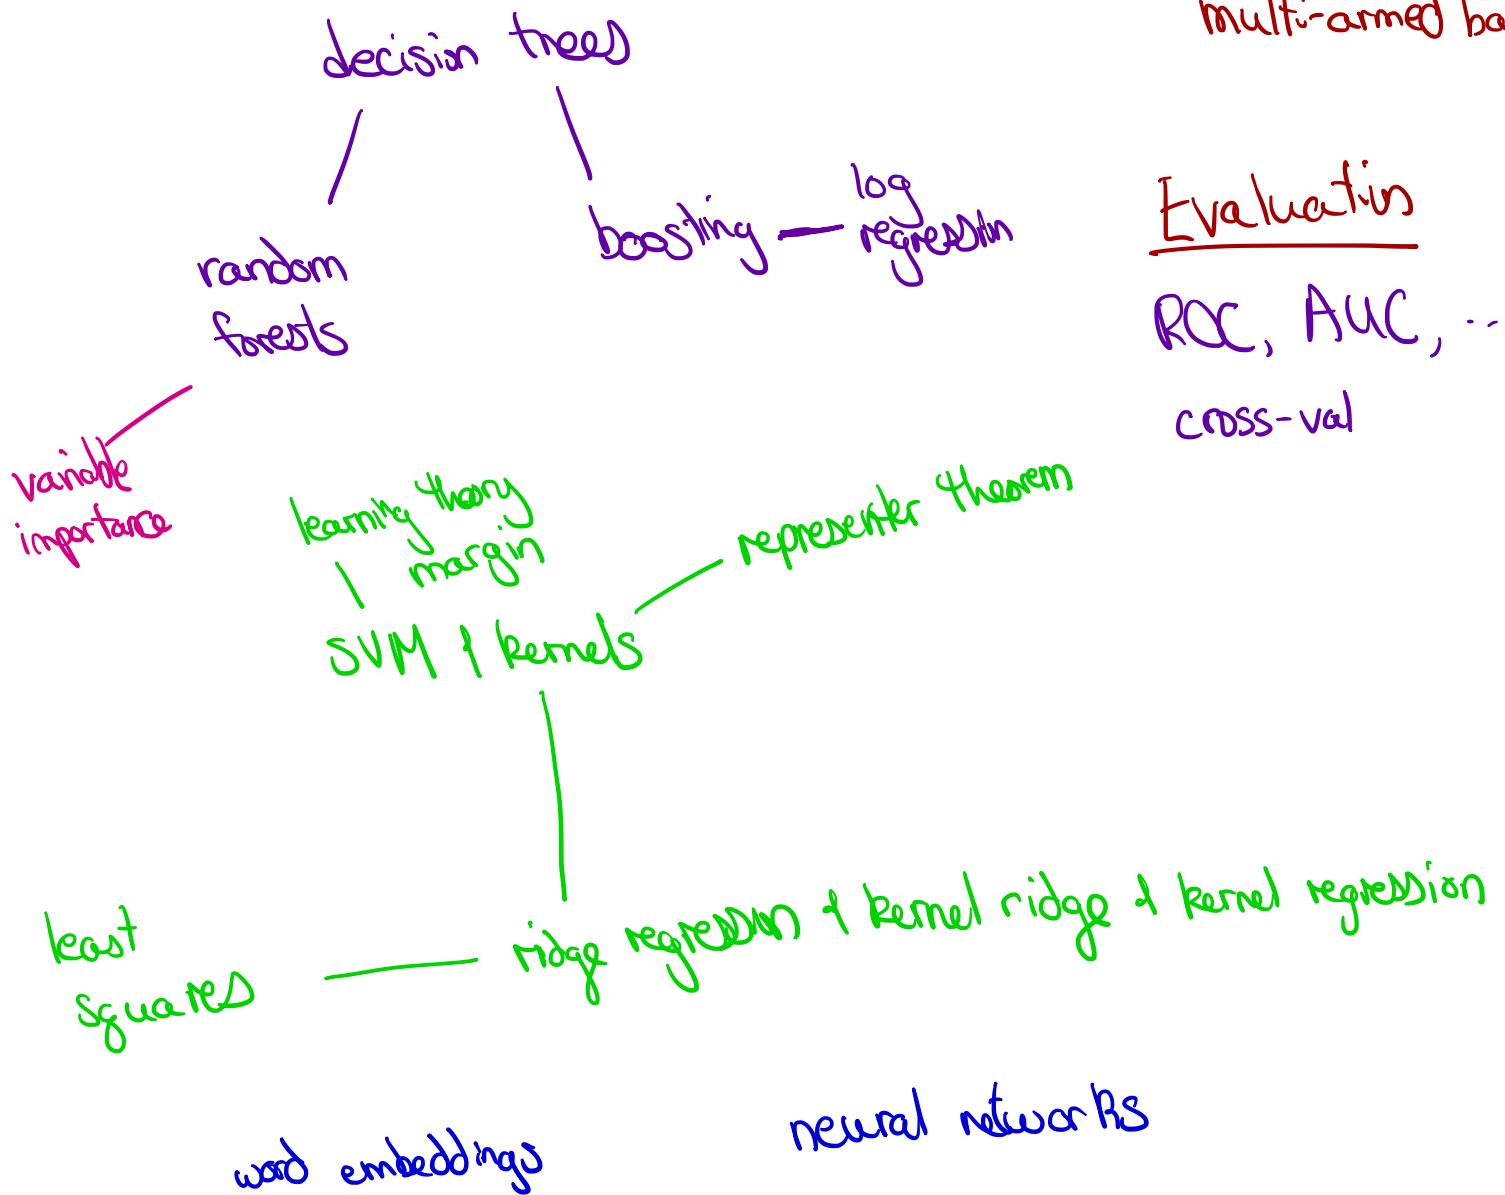 decision trees
multi-armed ba
random
forests
boosting
log
regression
Evaluation
ROC, AUC, ...
cross-val
variable
importance
learning theory
margin
representer theorem
SVM & kernels
least
squares
ridge regression & kernel ridge & kernel regression
word embeddings
neural networks